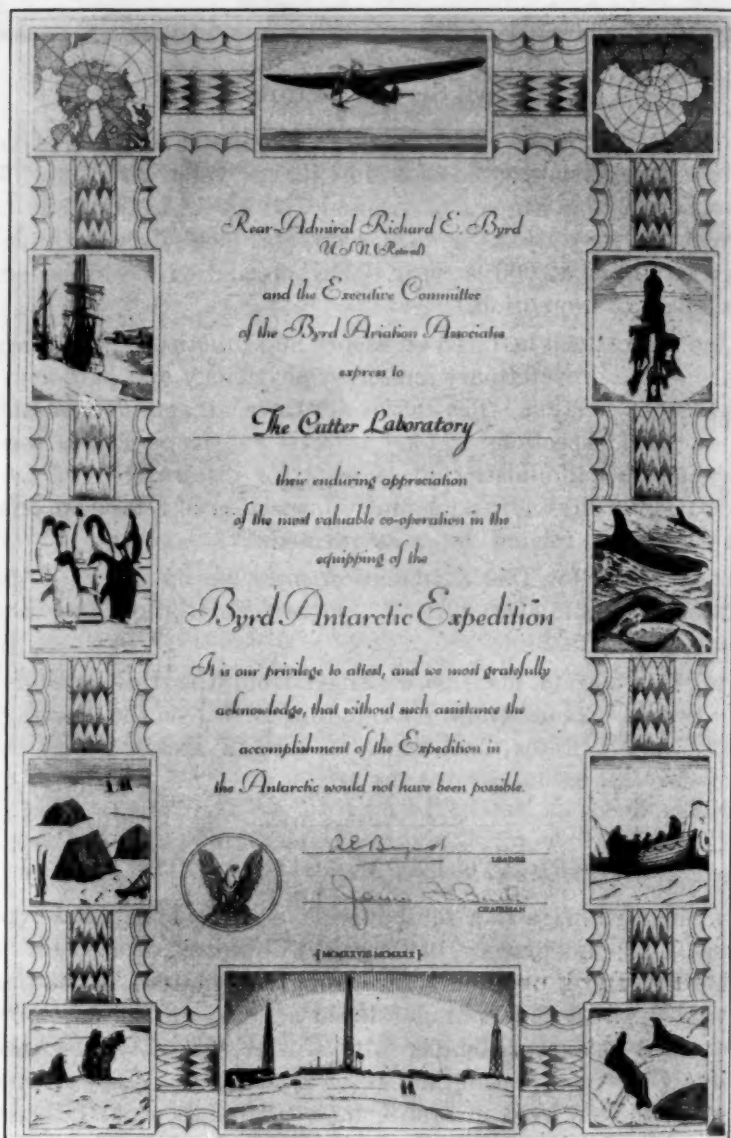 Rear-Admiral Richard E. Byrd
U.S.N. (Retired)
and the Executive Committee
of the Byrd Aviation Associates
express to
The Cutter Laboratory
their enduring appreciation
of the most valuable co-operation in the
equipping of the
Byrd Antarctic Expedition
It is our privilege to attest, and we most gratefully
acknowledge, that without such assistance the
accomplishment of the Expedition in
the Antarctic would not have been possible.
R E Byrd
LEADER
CHAIRMAN
[MCMXXVIII-MCMXXX]